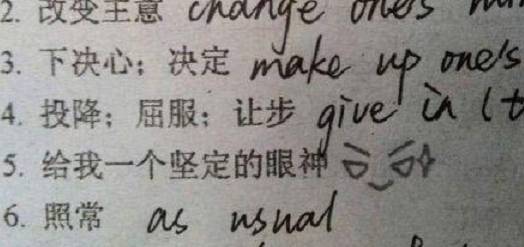 2. 改变主意 change one's
3. 下决心；决定 make up one's
4. 投降；屈服；让步 give in (t
5. 给我一个坚定的眼神
6. 照常 as usual